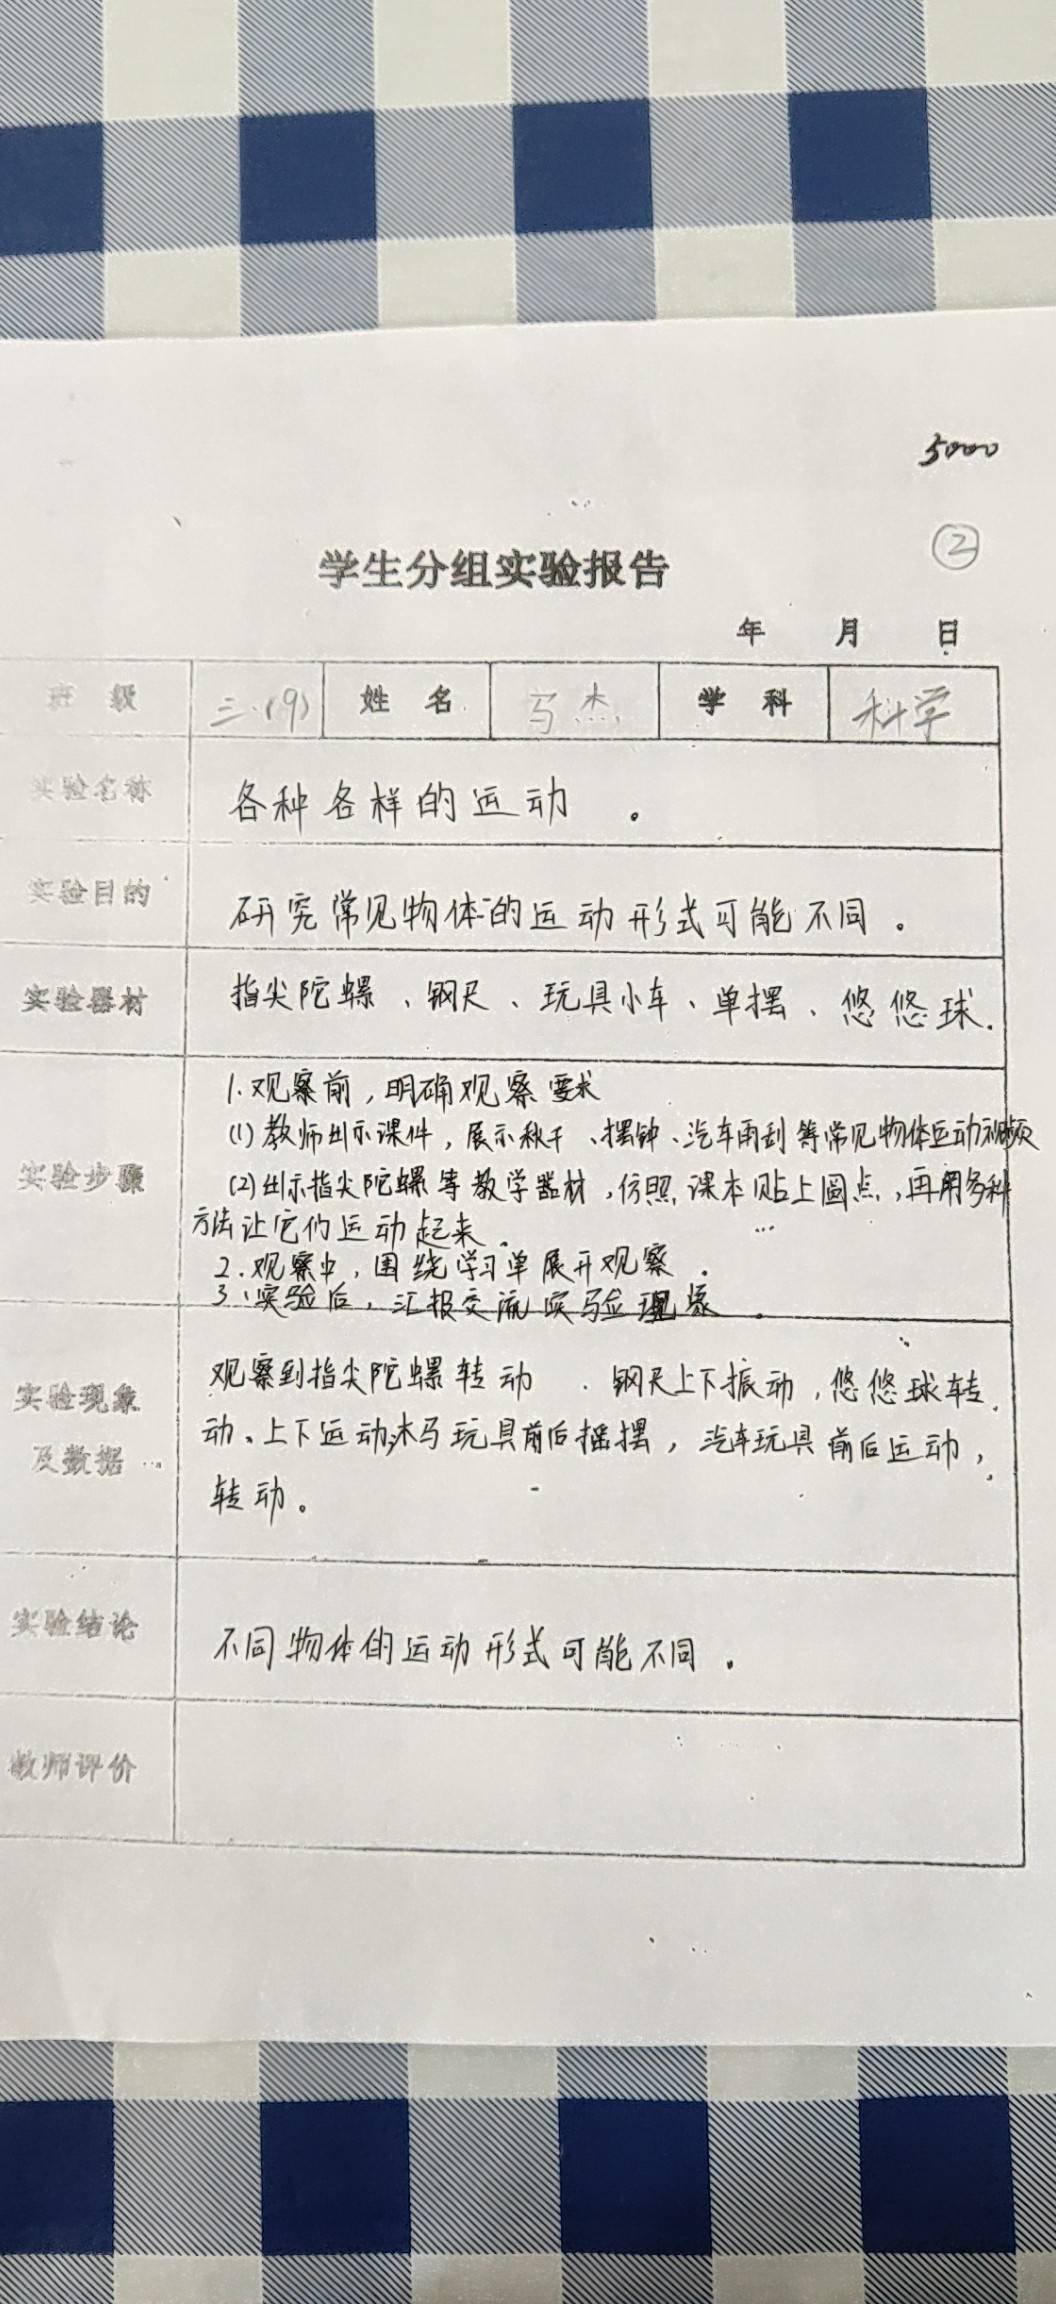 5000
②
学生分组实验报告
年 月 日
班级 三.(9) 姓名 马杰 学科 科学
实验名称 各种各样的运动 。
实验目的 研究常见物体的运动形式可能不同 。
实验器材 指尖陀螺 、钢尺 、玩具小车、单摆 、悠悠球.
实验步骤
1.观察前,明确观察要求
(1)教师出示课件,展示秋千、摆钟、汽车雨刮等常见物体运动视频
(2)出示指尖陀螺等教学器材,仿照课本贴上圆点,再用多种
方法让它们运动起来.
2.观察中,围绕学习单展开观察.
3.实验后,汇报交流实验现象.
实验现象
及数据
观察到指尖陀螺转动 . 钢尺上下振动,悠悠球转
动、上下运动,木马玩具前后摇摆,汽车玩具前后运动,
转动。
实验结论 不同物体的运动形式可能不同 。
教师评价